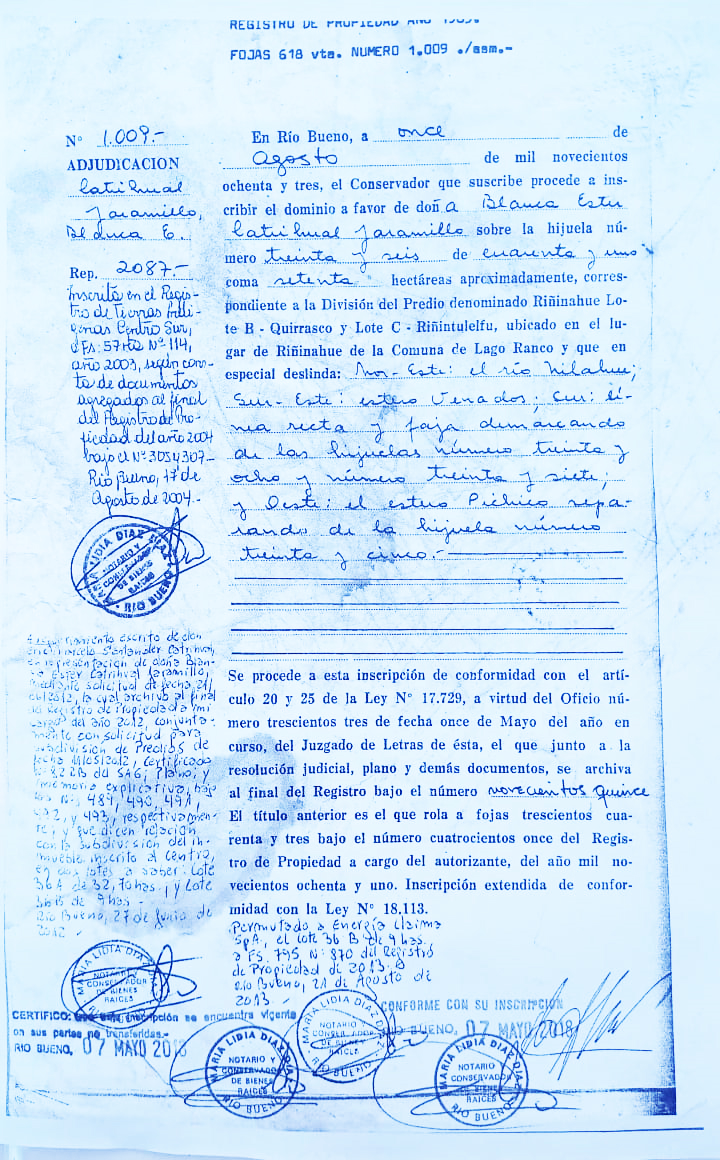 REGISTRO DE PROPIEDAD AÑO 1983.
FOJAS 618 vta. NUMERO 1.009 ./asm.-
N° 1.009.-
ADJUDICACION
Catrihual
Jaramillo,
Blanca E.
Rep. 2087.-
Inscrita en el Regis-
tro de Tierras Indí-
genas Centro Sur,
a Fs: 57 vta Nº 114,
año 2003, según cons-
ta de documentos
agregados al final
del Registro de Pro-
piedad del año 2004
bajo el Nº 306 y 307.-
Río Bueno, 17 de
Agosto de 2004.-
MARIA LIDIA DIAZ DIAZ
NOTARIO Y
CONSERVADOR
DE BIENES
RAICES
RIO BUENO
A requerimiento escrito de don
Marcelo Santander Catrihual,
en representación de doña Blan-
ca Ester Catrihual Jaramillo,
mediante solicitud de fecha 21/
06/2012, la cual archivo al final
del Registro de Propiedad a mi
cargo del año 2012, conjunta-
mente con solicitud para
subdivisión de Predios de
fecha 11/05/2012, Certificado
del SAG; Plano; y
memoria explicativa, bajo
los Nos 489, 490, 491,
492, y 493, respectivamen-
te, y que dicen relación
con la subdivisión del in-
mueble inscrito al centro,
en dos lotes a saber: Lote
36 A de 32,70 has., y Lote
36 B de 9 has.-
Río Bueno, 27 de Junio de
2012.-
En Río Bueno, a once de
agosto de mil novecientos
ochenta y tres, el Conservador que suscribe procede a ins-
cribir el dominio a favor de doña Blanca Ester
Catrihual Jaramillo sobre la hijuela nú-
mero treinta y seis de cuarenta y uno
coma setenta hectáreas aproximadamente, corres-
pondiente a la División del Predio denominado Riñinahue Lo-
te B - Quirrasco y Lote C - Riñintulelfu, ubicado en el lu-
gar de Riñinahue de la Comuna de Lago Ranco y que en
especial deslinda: Nor-Este: el río Nilahue;
Sur-Este: estero Venados; Sur: lí-
nea recta y faja demarcando
de las hijuelas número treinta y
ocho y número treinta y siete;
y Oeste: el estero Pichico sepa-
rando de la hijuela número
treinta y cinco.-
Se procede a esta inscripción de conformidad con el artí-
culo 20 y 25 de la Ley N° 17.729, a virtud del Oficio nú-
mero trescientos tres de fecha once de Mayo del año en
curso, del Juzgado de Letras de ésta, el que junto a la
resolución judicial, plano y demás documentos, se archiva
al final del Registro bajo el número novecientos quince
El título anterior es el que rola a fojas trescientos cua-
renta y tres bajo el número cuatrocientos once del Regis-
tro de Propiedad a cargo del autorizante, del año mil no-
vecientos ochenta y uno. Inscripción extendida de confor-
midad con la Ley N° 18.113.
Permutado a Energía Llaima
SpA, el lote 36 B de 9 has.
a Fs. 795 Nº 870 del Registro
de Propiedad de 2013.
Río Bueno, 21 de Agosto de
2013.-
MARIA LIDIA DIAZ
NOTARIO Y
CONSERVADOR
DE BIENES
RAICES
CERTIFICO: Que esta inscripción se encuentra vigente
en sus partes no transferidas.-
RIO BUENO, 07 MAYO 2018
CONFORME CON SU INSCRIPCION
RIO BUENO, 07 MAYO 2018
MARIA LIDIA DIAZ DIAZ
NOTARIO Y
CONSERVADOR
DE BIENES
RAICES
RIO BUENO
MARIA LIDIA DIAZ DIAZ
NOTARIO
CONSERVADOR
DE BIENES
RAICES
RIO BUENO
MARIA LIDIA DIAZ DIAZ
NOTARIO
CONSERVADOR
DE BIENES
RAICES
RIO BUENO